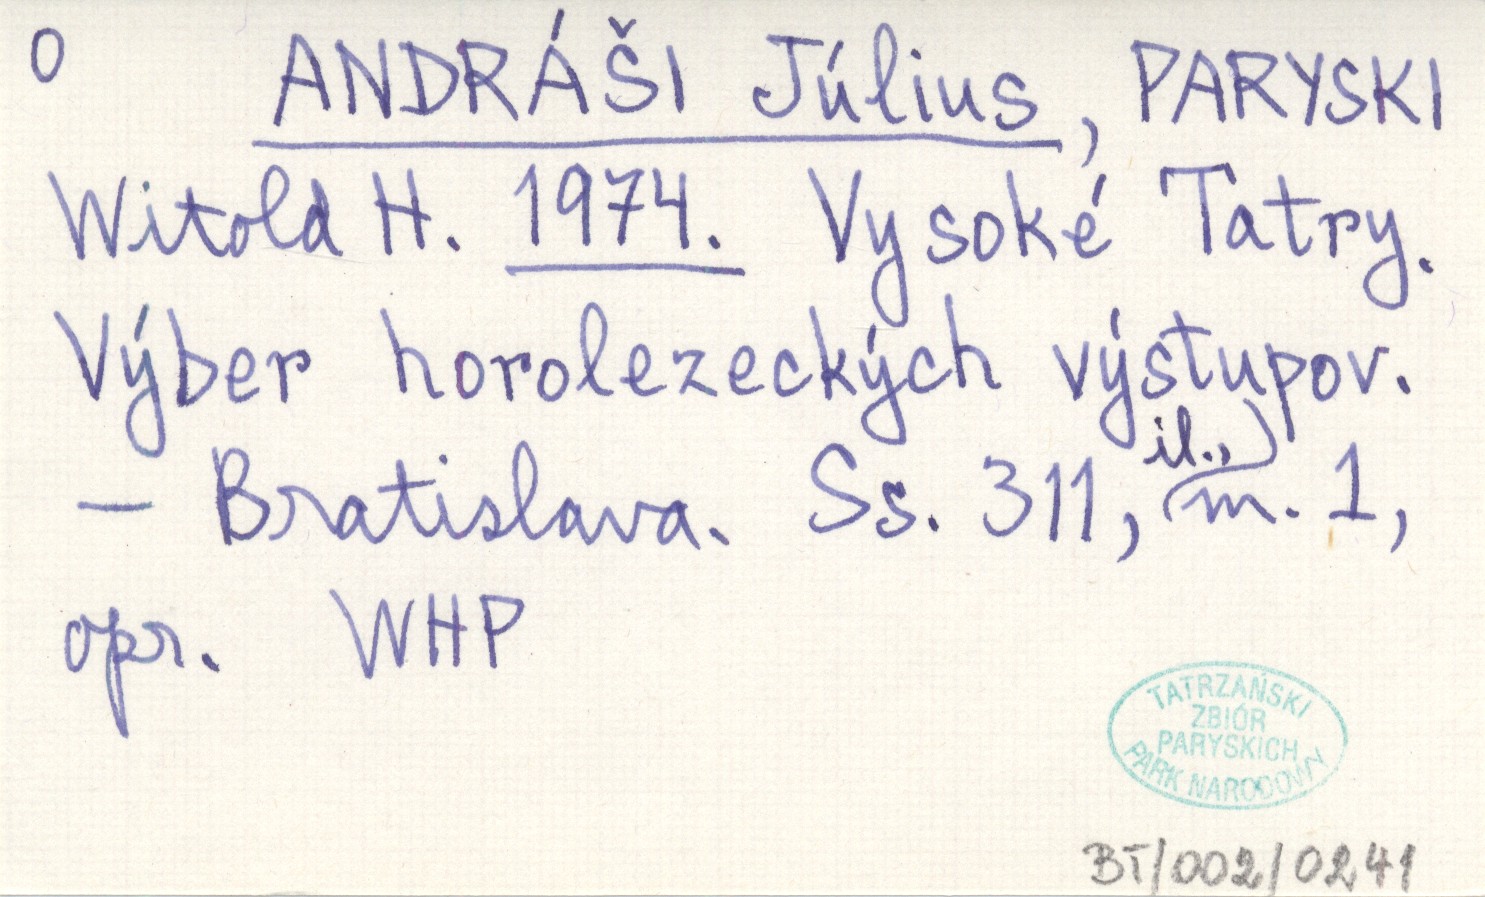 O ANDRÁŠI Július, PARYSKI
Witold H. 1974. Vysoké Tatry.
Výber horolezeckých výstupov.
— Bratislava. Ss. 311, il., m. 1,
opr. WHP
TATRZAŃSKI
ZBIÓR
PARYSKICH
PARK NARODOWY
BT/002/0241